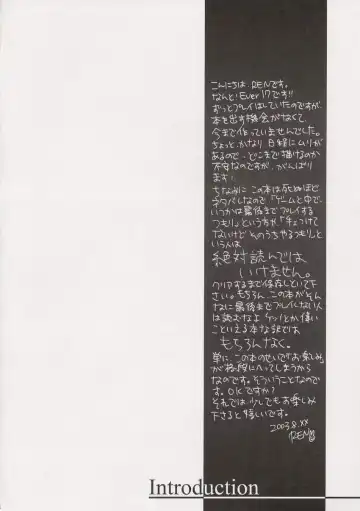 こんにちは、RENです。
なんと!Ever17です!!
ずっとプレイはしていたのですが
本を出す機会がなくて、
今まで作っていませんでした。
ちょっと、かなり日程にムリが
あるので、どこまで描けるのか
不安なのですが、がんばり
ます!
ちなみに この本は死ぬほど
ネタバレなので「ゲームと中で、
いつかは最後までプレイする
つもり」という方や「手をつけて
ないけど そのうちやるつもり」と
いう人は
絶対読んでは
いけません。
クリアするまで保存しといて下
さい。もちろん、この本がそん
なに最後までプレイしない人
は読むなよ ケッ!とか偉い
こといえる本な訳では
もちろんなく。
単に、この本のせいで「お楽しみ」
が格段にへってしまうから
なのです。そういうことなので
す。OKですか?
それでは少しでもお楽しみ
下さると嬉しいです。
2003.8.XX
REN
Introduction